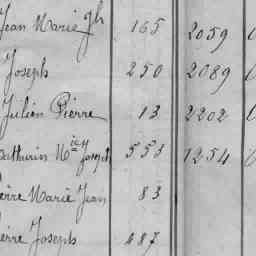 Jean Marie Jh 165 2059
Joseph 250 2089
Julien Pierre 13 2202
Mathurin Mie Joseph 553 1254
Pierre Marie Jean 83
Pierre Joseph 487